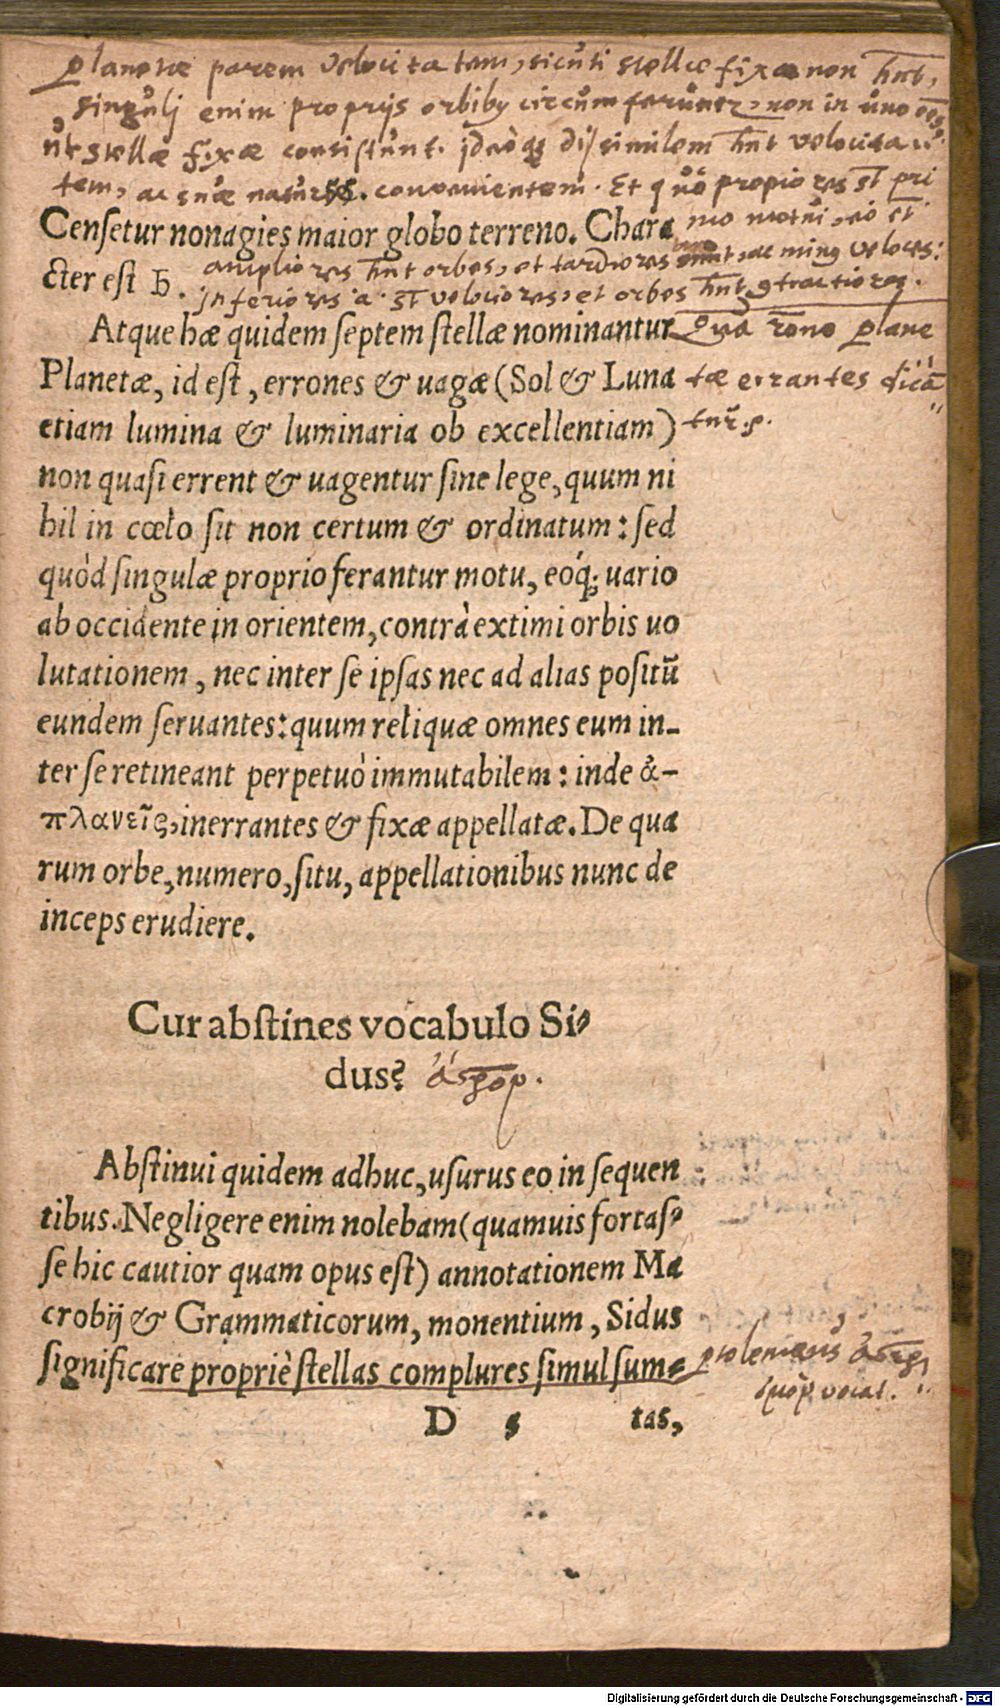 planetæ parem velocitatem, sicuti stellæ fixæ non hñt,
singulj enim proprijs orbibꝰ circumferuntr, non in uno
ut stellæ fixæ consistunt. jdeòqꝫ dissimilem hñt velocita
tem, ac suæ naturæ convenientem. Et quò propiores st̄ pri
mo motui, eò et
Censetur nonagies maior globo terreno. Chara
ampliores hñt orbes, et tardiores sunt, ac minꝰ veloces:
cter est ♄.
jnferiores a. st̄ velociores, et orbes hñt ꝯtractiores.
Atque hæ quidem septem stellæ nominantur
Qua rōne plane
Planetæ, id est, errones & uagæ (Sol & Luna
tæ errantes dicā
etiam lumina & luminaria ob excellentiam)
tur.
non quasi errent & uagentur sine lege, quum ni
hil in cœlo sit non certum & ordinatum: sed
quòd singulæ proprio ferantur motu, eóq; uario
ab occidente in orientem, contrà extimi orbis uo
lutationem, nec inter se ipsas nec ad alias positū
eundem seruantes: quum reliquæ omnes eum in-
ter se retineant perpetuò immutabilem: inde ἀ-
πλανεῖς, inerrantes & fixæ appellatæ. De qua
rum orbe, numero, situ, appellationibus nunc de
inceps erudiere.
Cur abstines vocabulo Si-
dus?
Abstinui quidem adhuc, usurus eo in sequen
tibus. Negligere enim nolebam (quamuis fortas-
se hic cautior quam opus est) annotationem Ma
crobij & Grammaticorum, monentium, Sidus
significare propriè stellas complures simul sum-
ptolemæus
vocat.
D 5 tas,
Digitalisierung gefördert durch die Deutsche Forschungsgemeinschaft - DFG